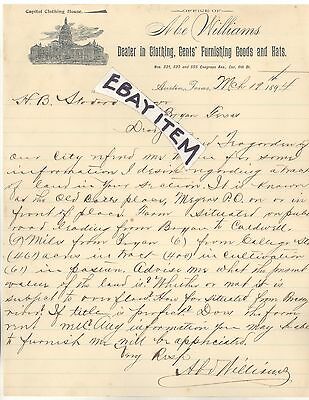 Capitol Clothing House.
OFFICE OF
Abe Williams
Dealer in Clothing, Gents' Furnishing Goods and Hats.
Nos. 521, 523 and 525 Congress Ave., Cor. 6th St.
Austin, Texas, Mch 19th 1894
H. B.
Bryan Texas
EBAY ITEM
Our City refered me to you for some
information I desire regarding a tract
of land in your section. It is known
as the Old place, P.O. on or in
front of place. Farm situated on public
road leading from Bryan to Caldwell.
(7) Miles from Bryan (6) from College Sta
(461) acres in tract (400) in Cultivation
(61) in pasture. Advise me what the present
value of the land is? Whether or not it is
subject to overflow? How far situated from
river? If title is perfect? Does the farm
rent Any information you may be able
to furnish me will be appreciated.
Very Resp
Abe Williams